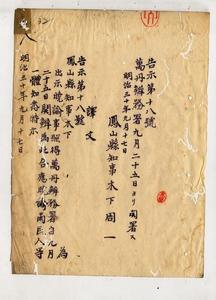 告示第十八號
萬丹辨務署九月二十五日ヨリ開署ス
明治三十年九月十七日
鳳山縣知事木下周一
譯文
告示第十八號
鳳山縣知事木下 為
出示曉諭事照得萬丹辨務署自九月
二十五日開辨為此名應曉諭商民人等
一體知悉特示
明治三十年九月十七日